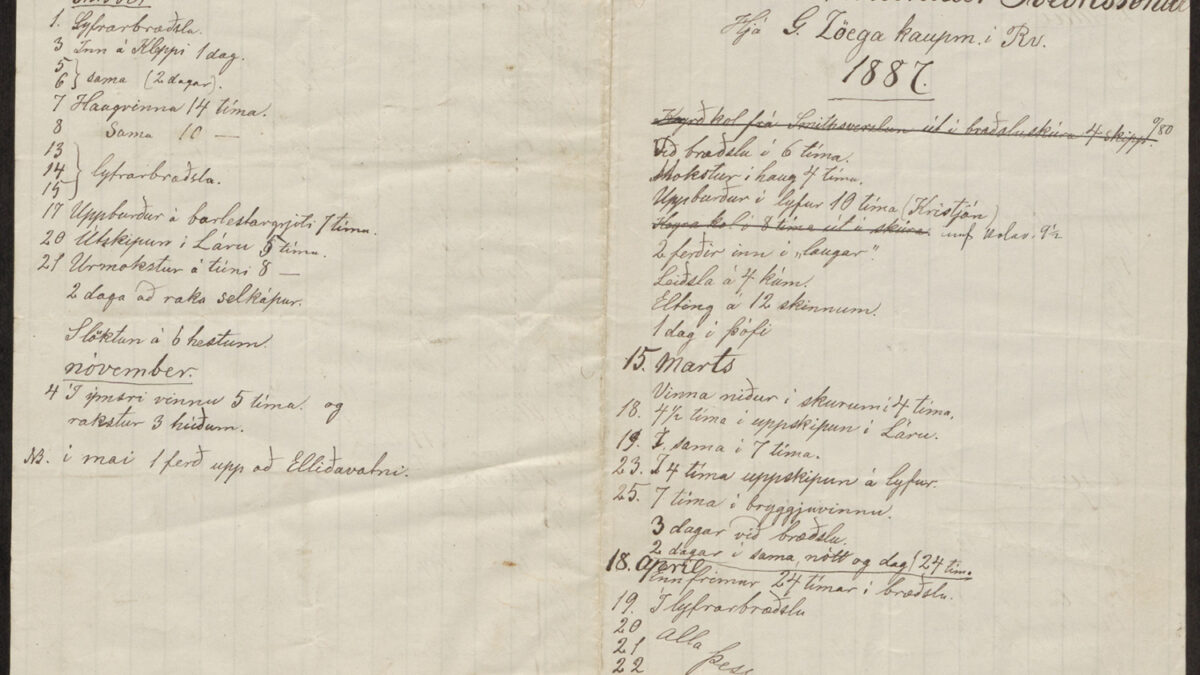 1. Lyfrarbræðslu.
3 Inn á Kleppi 1 dag.
5
6 } sama (2 dagar).
7 Haugvinna 14 tíma.
8 Sama 10 —
13
14 } lyfrarbræðsla.
15
17 Uppburður á barlestargrjóti 7 tíma.
20 Útskipun í Láru 5 tíma.
21 Urmokstur á túni 8 —
2 daga að raka selkápur.
Slöktun á 6 hestum.
nóvember.
4 Í ýmsri vinnu 5 tíma. og
rakstur 3 húðum.
NB. í mai 1 ferð upp að Elliðavatni.
Hjá G. Zöega kaupm. í Rv.
1887.
kol frá Smithsverslun út í bræðsluskúra 4 skipp. 0/80
Við bræðslu í 6 tíma.
Mokstur í haug 4 tíma.
Uppburður í lyfur 10 tíma (Kristján)
Keyra kol í 8 tíma út í skúra. 9½
2 ferðir inn í „laugar".
Leiðsla á 4 kúm.
Elting á 12 skinnum.
1 dag í þófi
15. Marts
Vinna niður í skurum í 4 tíma.
18. 4½ tíma í uppskipun í Láru.
19. Í sama í 7 tíma.
23. Í 4 tíma uppskipun á lyfur.
25. 7 tíma í bryggjuvinnu.
3 dagar við bræðslu.
2 dagar í sama, nótt og dag (24 tím.
18. apríl
Ennfremur 24 tímar í bræðslu.
19. Í lyfrarbræðslu
20 alla
21 þess
22